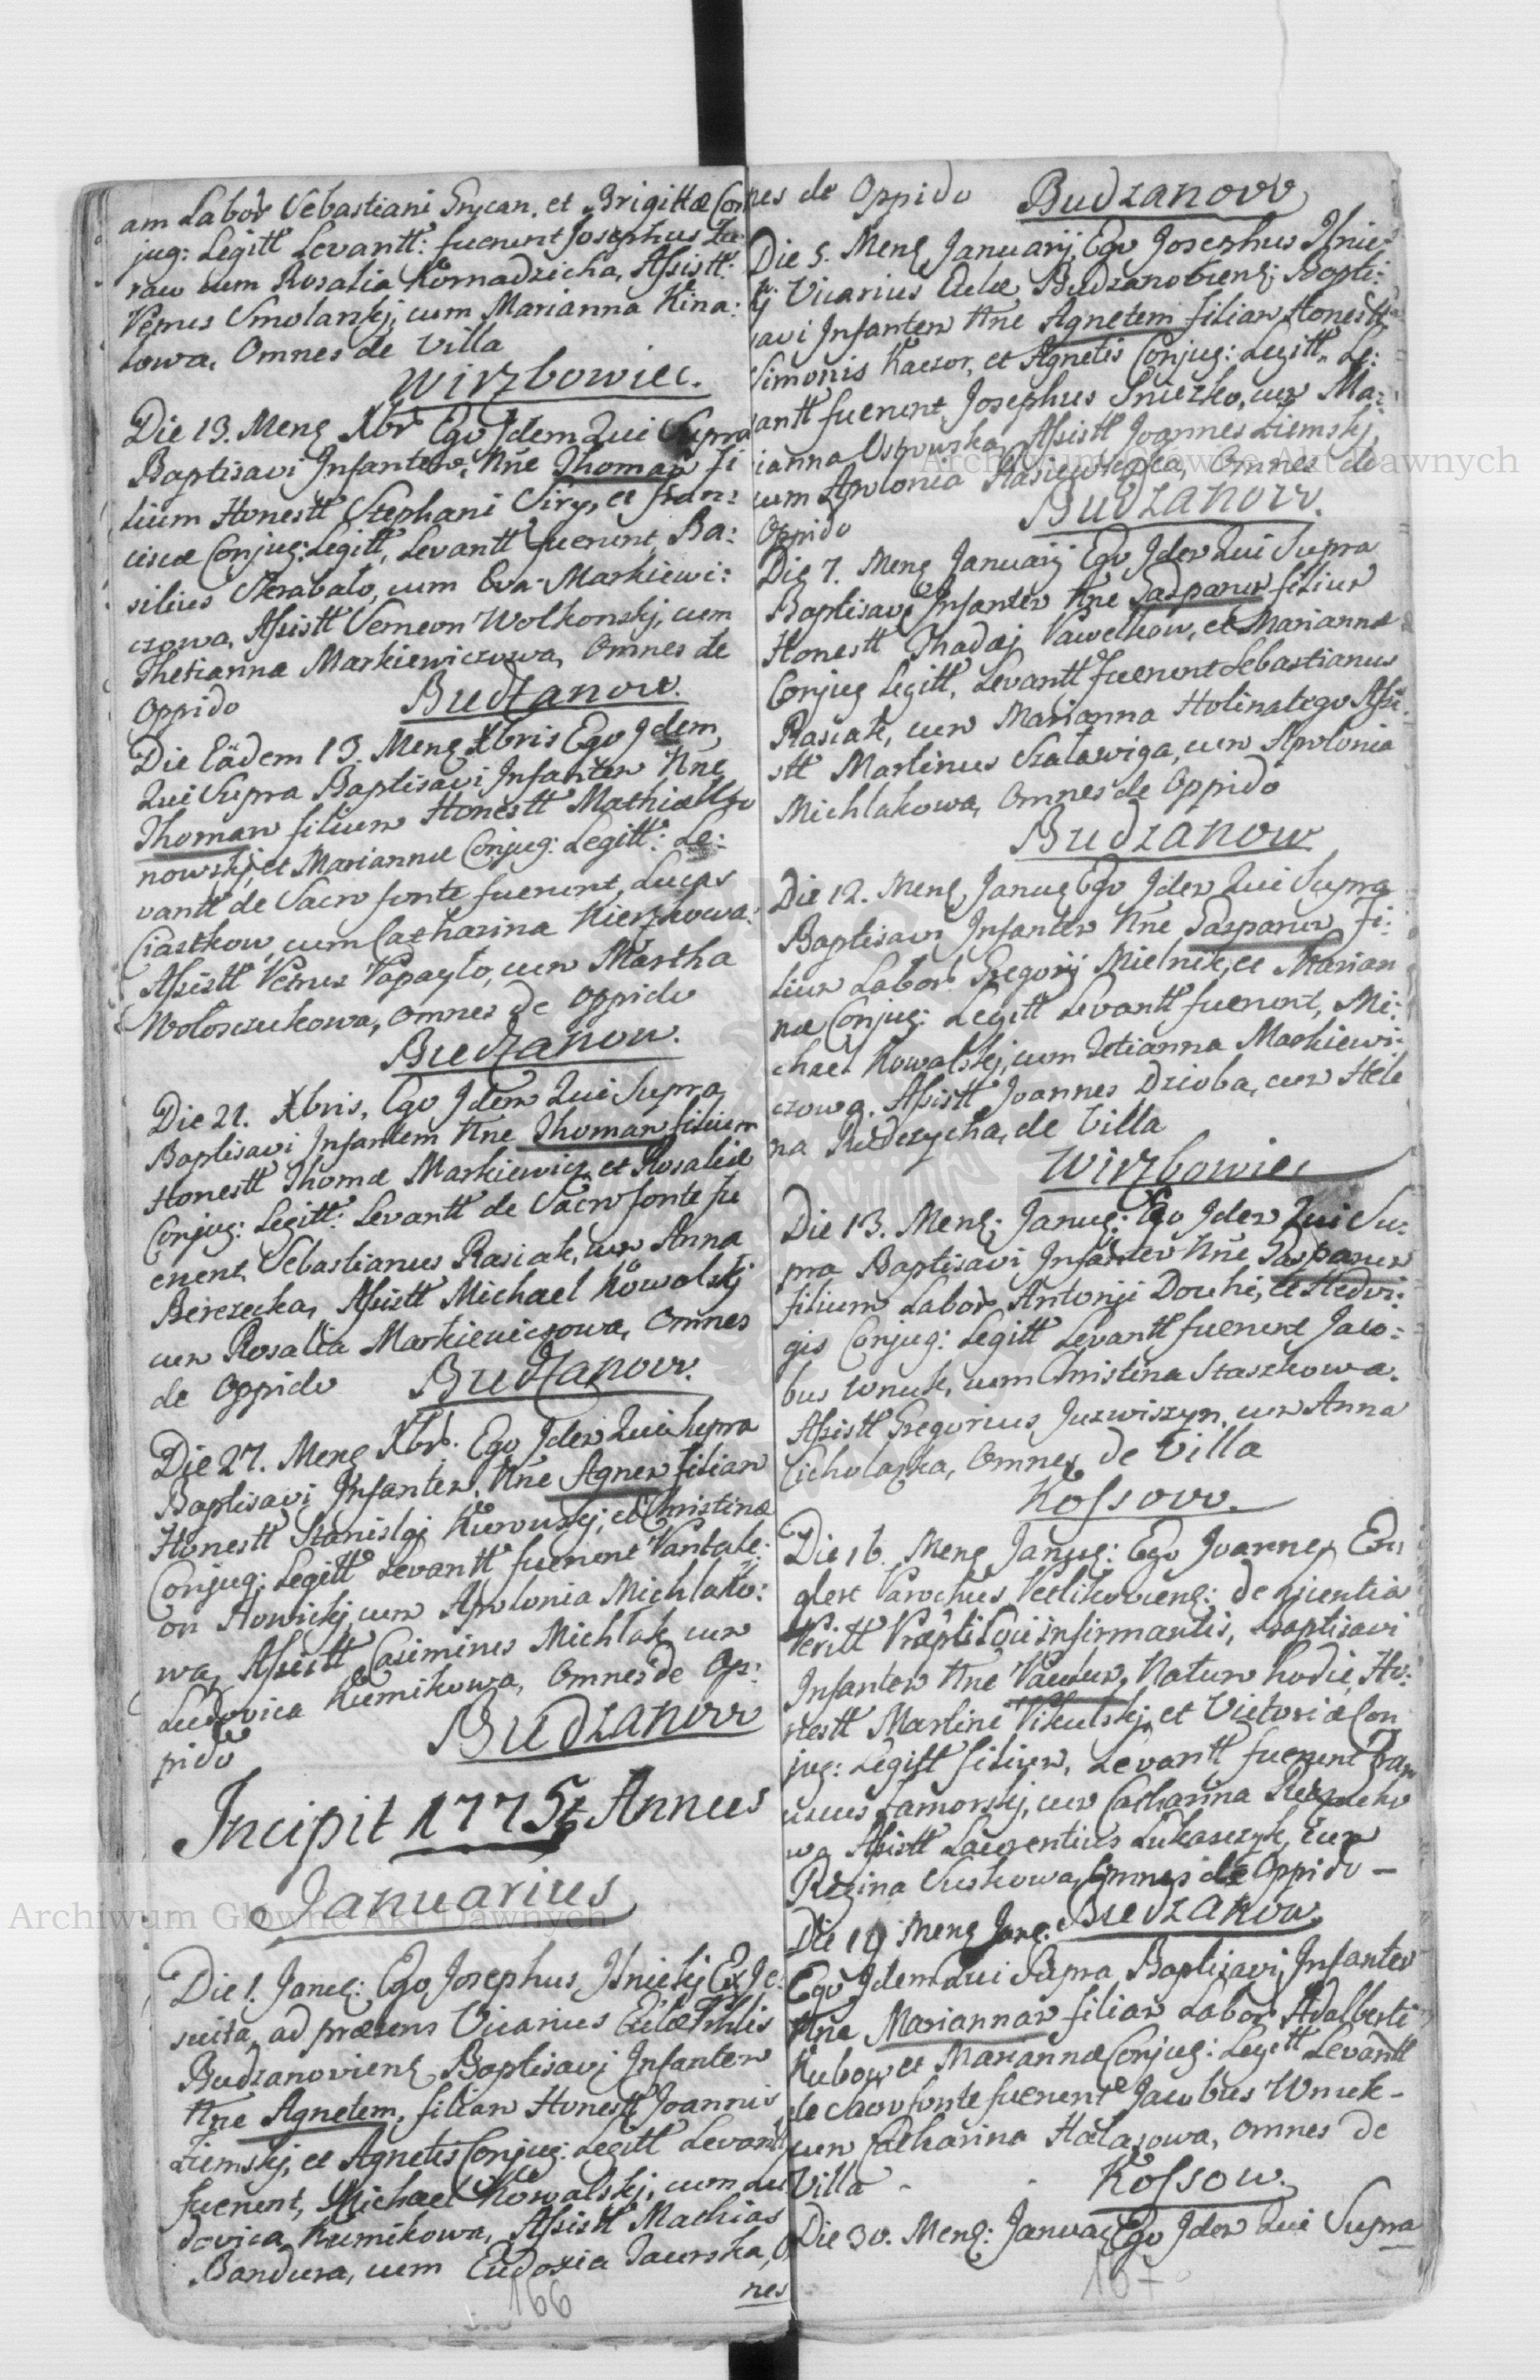 am Labor Sebastiani Grycan, et Brigittæ Con
jug: Legitt Levantt: fuerunt Josephus Zu:
raw cum Rosalia Kornadzicha, Assistt:
Petrus Smolanskj, cum Marianna Kina:
lowa, Omnes de Villa
Wirzbowiec.
Die 13. Mens Xbr Ego Jdem Qui Supra
Baptisavi Infantem, Nne Thomam fi
lium Honestt Stephani Siry, et Fran:
ciscæ Conjug: Legitt, Levantt fuerunt Ba:
silius Skrabalo, cum Eva Markiewi:
czowa, Assistt Semeon Wolkonskj, cum
Thetianna Markiewiczowa, Omnes de
Oppido Budzanow.
Die Eadem 13. Mens Xbris Ego Jdem
Qui Supra Baptisavi Infantem Nne
Thomam filium Honestt Mathiæ
nowskj, et Mariannæ Conjug: Legitt: Le:
vantt de Sacro fonte fuerunt, Lucas
Ciastkow, cum Catharina Kierzkowa:
Assistt Petrus Papayło, cum Martha
Woloszczukowa, Omnes de Oppido
Budzanow.
Die 21. Xbris, Ego Jdem Qui Supra
Baptisavi Infantem Nne Thomam filium
Honestt Thomæ Markiewicz et Rosaliæ
Conjug: Legitt: Levantt de Sacro fonte fu
erunt, Sebastianus Rasiak, cum Anna
Berezecka, Assistt Michael Kowalskj
cum Rosalia Markiewiczowa, Omnes
de Oppido Budzanow.
Die 27. Mens Xbr. Ego Jdem Qui Supra
Baptisavi Infantem, Nne Agnem filiam
Honestt Stanislaj Kurowskj, et Christinæ
Conjug: Legitt Levantt fuerunt Pantale:
on Nowickj, cum Apolonia Michlako:
wa, Assistt Casimirus Michlak cum
Ludovica Kumikowa, Omnes de Op:
pido Budzanow
Incipit 1775 Annus
Januarius
Die 1. Janu: Ego Josephus Ilnickj Ex Je:
suita, ad præsens Vicarius Ecclæ Pchlis
Budzanoviens Baptisavj Infantem
Nne Agnetem, filiam Honestt Joannis
Ziemskj, et Agnetis Conjug: Legitt Levantt
fuerunt, Michael Kowalskj, cum Lu
dovica Kumikowa, Assistt Mathias
Bandura, cum Eudoxia Jaworska, O
nes
166
nes de Oppido Budzanow
Die 5. Mens Januarij, Ego Josephus Ilnic:
kj Vicarius Eccle Budzanoviens: Bapti:
savi Infantem Nne Agnetem filiam Honestt
Simonis Kaczor, et Agnetis Conjug: Legitt, Le:
vantt fuerunt Josephus Sniezko, cum Ma:
rianna Ostrowska, Assistt Joannes Ziemskj,
cum Apolonia Omnes de
Oppido Budzanow.
Die 7. Mens Januarij Ego Jdem Qui Supra
Baptisavi Infantem Nne Gasparum filium
Honestt Thadæj Pawelkow, et Mariannæ
Conjug Legitt, Levantt fuerunt Sebastianus
Rasiak, cum Marianna Holinatego Assi:
stt Martinus Szalawiga, cum Apolonia
Michlakowa, Omnes de Oppido
Budzanow
Die 12. Mens Janu Ego Jdem Qui Supra
Baptisavi Infantem Nne Gasparum fi:
lium Labor: Gregorij Mielnik, et Marian
næ Conjug: Legitt Levantt fuerunt, Mi:
chael Kowalskj, cum Tetianna Markiewi:
czowa. Assistt Joannes Dzioba, cum Hele
na Rudczycha, de Villa
Wirzbowiec
Die 13. Mens: Janu: Ego Jdem Qui Su:
pra Baptisavi Infantem Nne Gasparum
filium Labor Antonji Douhi, et Hedvi:
gis Conjug: Legitt Levantt fuerunt Jaco:
bus Wnuk, cum Christina Staszkowa.
Assistt Gregorius Juzwiszyn, cum Anna
Cicholaska, Omnes de Villa
Kossow.
Die 16. Mens Janu: Ego Joannes En
glert Parochus Petlikoviens: de scientia
infirmantis, Baptisavi
Infantem Nne Paulum, Natum hodie, Ho:
nestt Martini Vikulskj, et Victoriæ Con
jug: Legitt filium, Levantt fuerunt Fran
ciscus Zamorskj, cum Catharina
wa Assistt Laurentius Lukaszczyk, cum
Regina Suskowa, Omnes de Oppido
Die 19 Mens Janu: Budzanow.
Ego Jdem Qui Supra Baptisavi, Infantem
Nne Mariannam filiam Labor Adalberti
Kubow et Mariannæ Conjug: Legitt Levantt
de Sacro fonte fuerunt Jacobus Wnuk
cum Catharina Halasowa, Omnes de
Villa Kossow.
Die 30. Mens: Janua: Ego Jdem Qui Supra
167
Archiwum Główne Akt Dawnych
Archiwum Główne Akt Dawnych